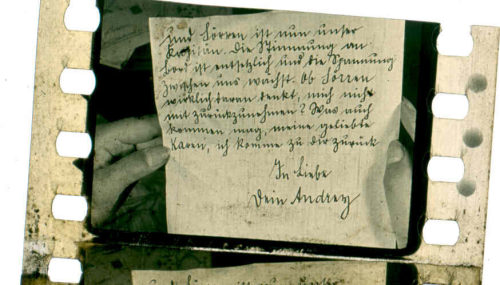 und Sörren ist nun unser
Kapitän. Die Stimmung an
Bord ist entsetzlich und die Spannung
zwischen uns wächst. Ob Sörren
wirklich daran denkt, mich nicht
mit zurückzunehmen? Was auch
kommen mag, meine geliebte
Karen, ich komme zu dir zurück
In Liebe
Dein Andrey